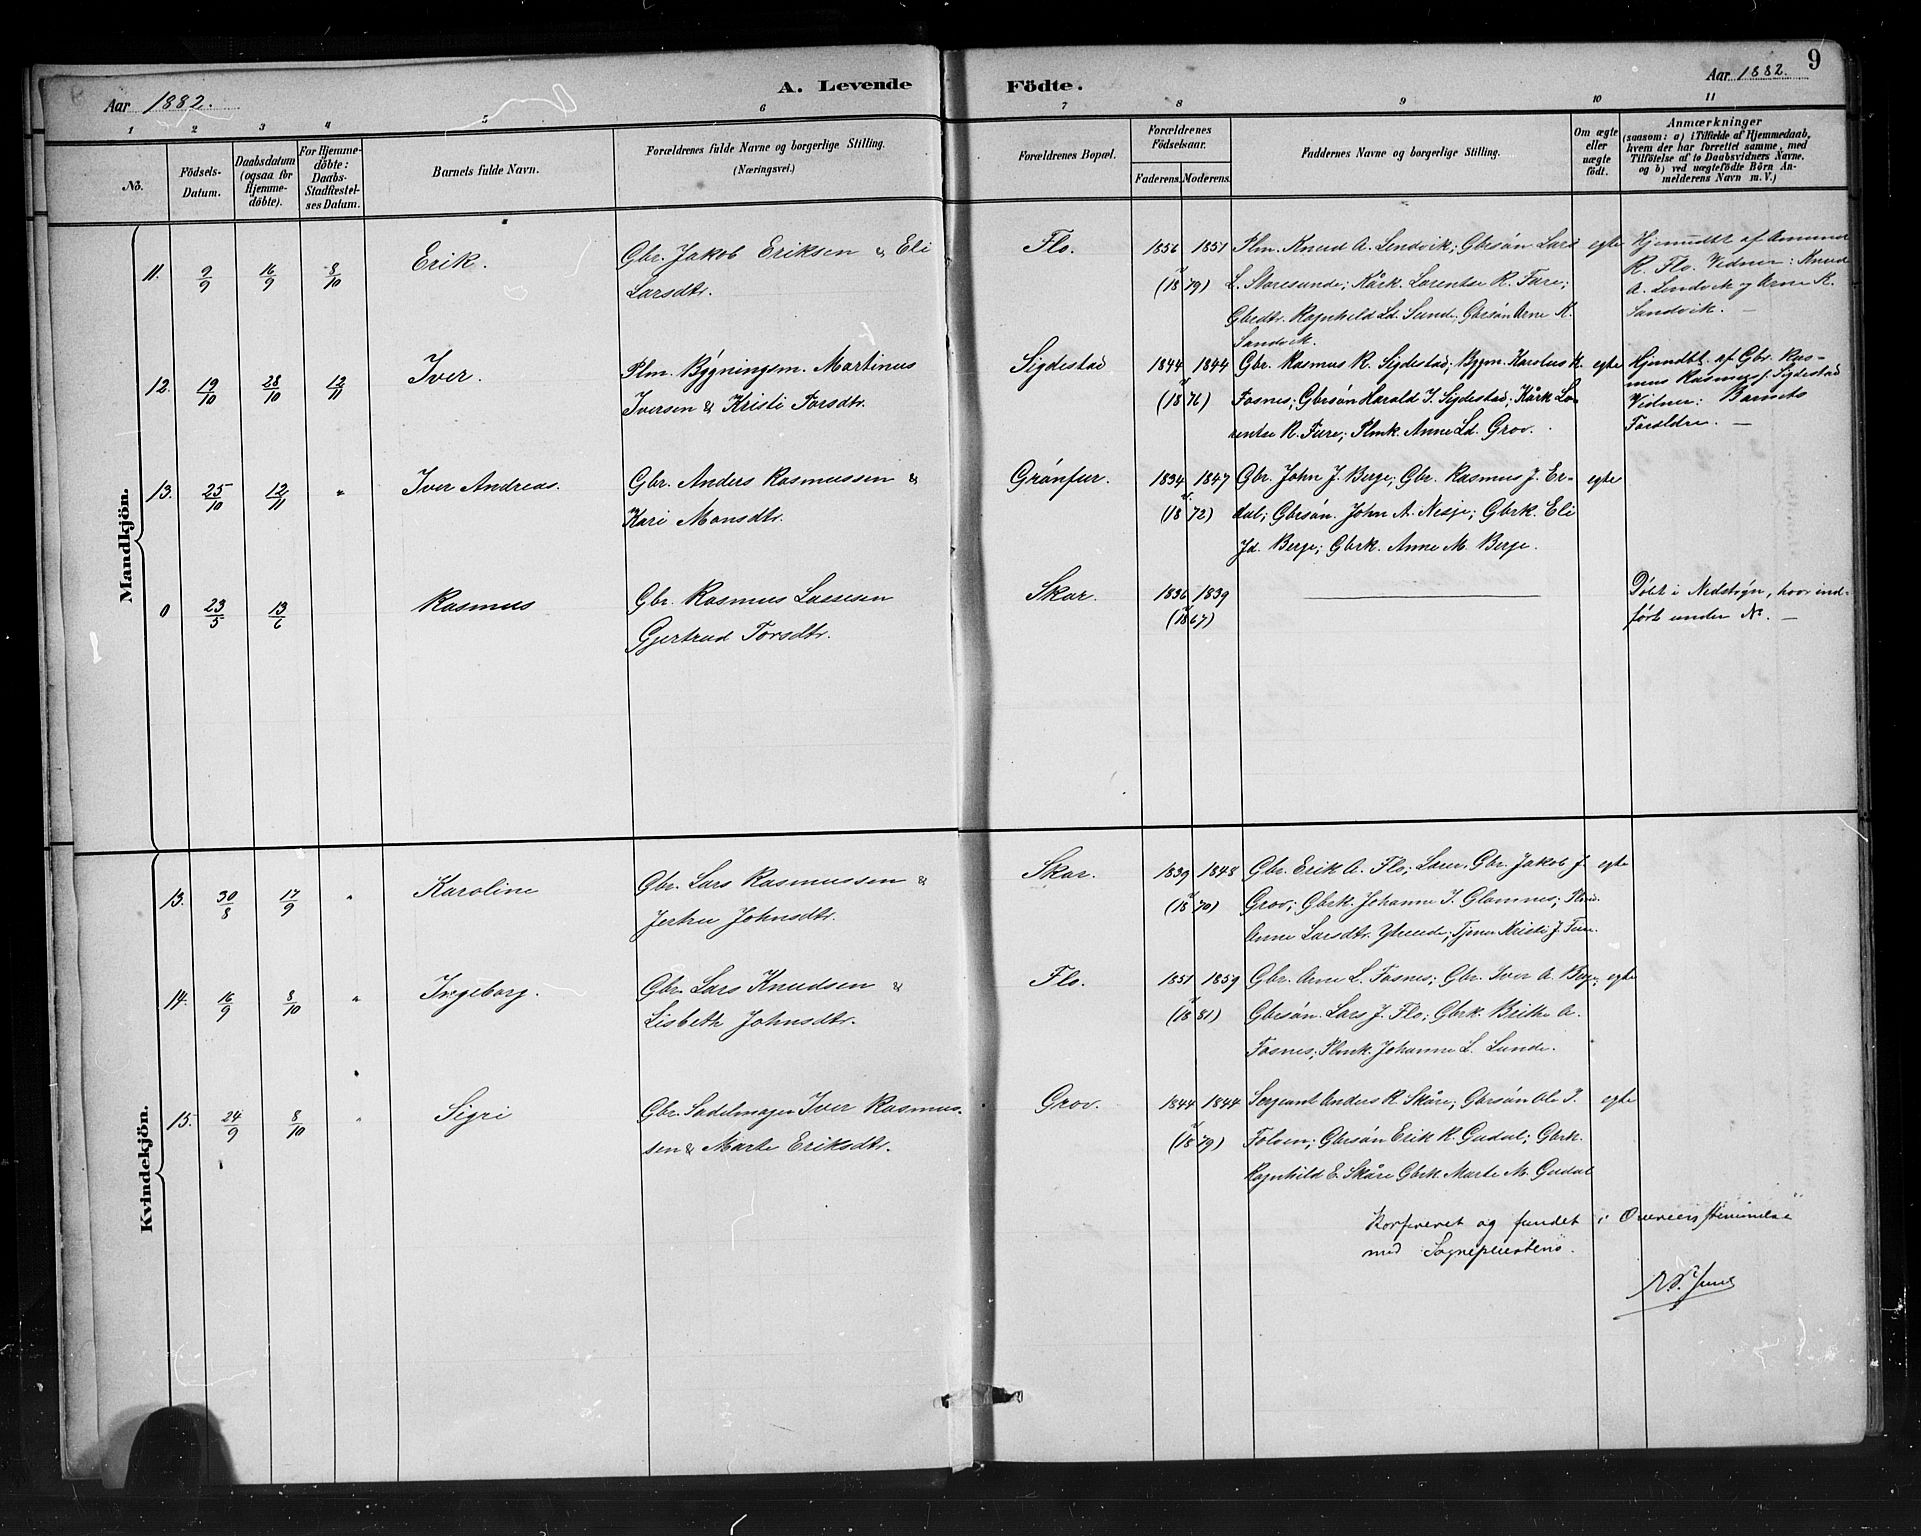 9
Aar 1882. A. Levende Födte. Aar 1882.
1 2 3 4 5 6 7 8 9 10 11
No.
Födsels-
Datum.
Daabsdatum
(ogsaa for
Hjemme-
döbte).
For Hjemme-
döbte:
Daabs-
Stadfæstel-
ses Datum.
Barnets fulde Navn.
Forældrenes fulde Navne og borgerlige Stilling.
(Næringsvei.)
Forældrenes Bopæl.
Forældrenes
Födselsaar.
Faderens. Moderens.
Faddernes Navne og borgerlige Stilling.
Om ægte
eller
uægte
födt.
Anmærkninger
(saasom: a) i Tilfælde af Hjemmedaab,
hvem der har forrettet samme, med
Tilföielse af to Daabsvidners Navne,
og b) ved uægtefödte Börn An-
melderens Navn m. V.)
Mandkjön.
11. 9/9 16/9 8/10 Erik. Gbr. Jakob Eriksen & Eli
Larsdtr.
Flo. 1856 1851
(18 79)
Plm. Knud A. Lendvik; Gbrsøn Lars
L. Storesunde; Kårk. Lorentse R. Fure;
Gbrdtr. Ragnhild Ld. Sunde, Gbrsøn Arne K.
Sandvik.
egte
Hjemmdbt af Amund
R. Flo. Vidner: Knud
A. Lendvik og Arne K.
Sandvik. —
12. 19/10 28/10 12/11 Iver. Plm. Bygningsm. Martinus
Iversen & Kristi Torsdtr.
Sigdestad 1844 1844
(18 76)
Gbr. Rasmus R. Sigdestad; Bygm. Karolus K.
Fosnes; Gbrsøn Harald I. Sigdestad; Kårk Lo-
rentse R. Fure; Plmk. Anne Ld. Grov.
egte
Hjemmdbt. af Gbr. Ras-
mus Rasmuss. Sigdestad
Vidner: Barnets
Forældre. —
13. 25/10 12/11 " Iver Andreas. Gbr. Anders Rasmussen &
Kari Monsdtr.
Grönfur. 1834 1847
(18 72)
Gbr. John J. Berge; Gbr. Rasmus J. Er-
dal; Gbrsøn. John A. Nesje; Gbrk. Eli
Jd. Berge; Gbrk. Anne M. Berge.
egte
0 23/5 13/6 Rasmus Gbr. Rasmus Lassesen
Gjertrud Torsdtr.
Skar. 1836 1839
(18 67)
Döbt i Nedstryn, hvor ind-
ført under No. —
Kvindekjön.
13. 30/8 17/9 " Karoline Gbr. Lars Rasmussen &
Jertru Johnsdtr.
Skar. 1839 1848
(18 70)
Gbr. Erik A. Flo; Gbr. Jakob J.
Grov; Gbrk. Johanne I. Glomnes;
Anne Larsdtr. Ytreeide; Tjener Kristi J. Fure.
egte
14. 16/9 8/10 " Ingeborg. Gbr. Lars Knudsen &
Lisbeth Johnsdtr.
Flo. 1851 1859
(18 81)
Gbr. Arne L. Fosnes; Gbr. Iver A. Berge;
Gbrsøn. Lars J. Flo; Gbrk. Brithe A.
Fosnes; Plmk. Johanne L. Sunde.
egte
15. 24/9 8/10 " Sigri Gbr. Sadelmager Iver Rasmus-
sen & Marte Eriksdtr.
Grov. 1844 1844
(18 79)
Sergeant Anders R. Skåre; Gbrsøn Ole I.
Folven; Gbrsøn Erik R. Gudal; Gbrk.
Ragnhild E. Skåre Gbrk. Marte M. Gudal
egte
Konfereret og fundet i Overensstemmelse
med Sognepræstens.